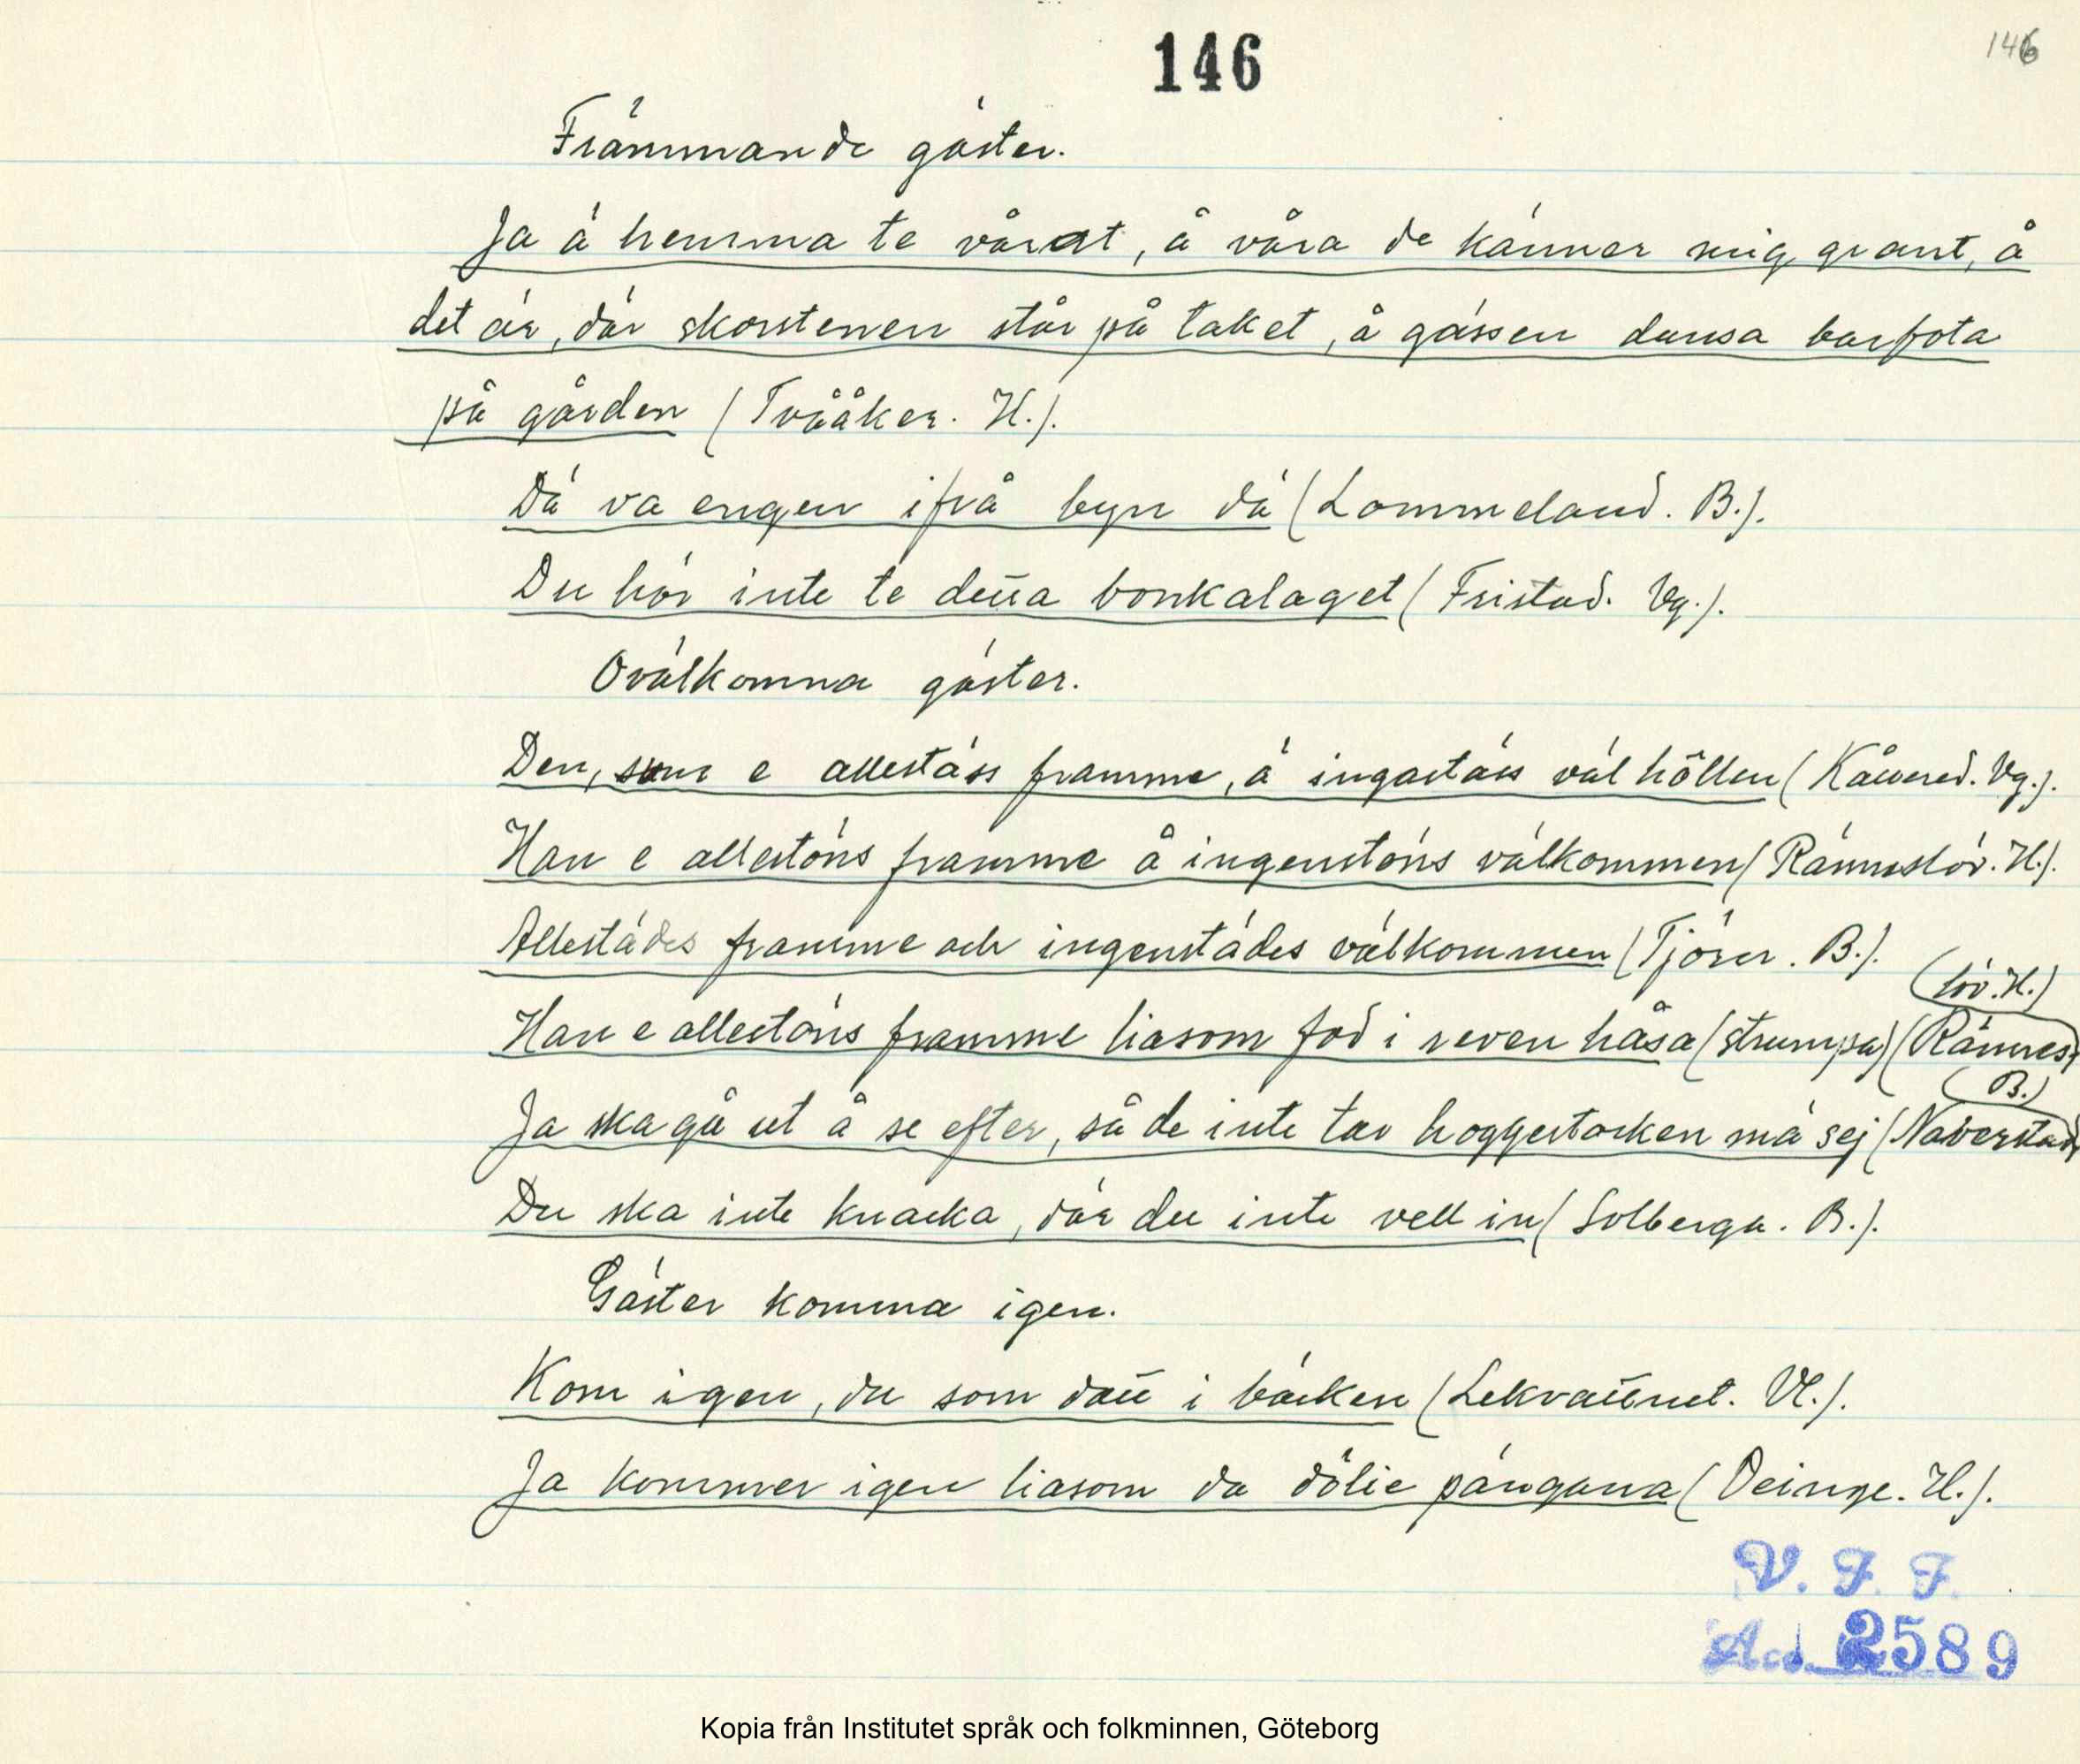 146
146
Främmande gäster.
Ja ä hemma te vårat, å våra de känner mig grant, å
det är, där skorstenen står på taket, å gässen dansa barfota
på gården (Tvååker. H.).
Dä va engen ifrå byn dä (Lommeland. B.).
Du hör inte te denna bonkalaget (Fristad. Vg.).
Ovälkomna gäster.
Den, som e allestäss framme, ä ingastäss väl hållen (Kållered. Vg.).
Han e allestöns framme å ingenstöns välkommen (Ränneslöv. H.).
Allestädes framme och ingenstädes välkommen (Tjörn. B.).
Han e allestöns framme liasom fod i reven håsa (strumpa) (Rännes-
löv. H.)
Ja ska gå ut å se efter, så de inte tar hoggestocken mä sej (Naverstad.
B.)
Du ska inte knacka, där du inte vell in (Solberga. B.).
Gäster komma igen.
Kom igen, du som dau i bäcken (Lekvattnet. Vl.).
Ja kommer igen liasom da dålie pängana (Veinge. H.).
V. F. F.
Acc. 2589
Kopia från Institutet språk och folkminnen, Göteborg